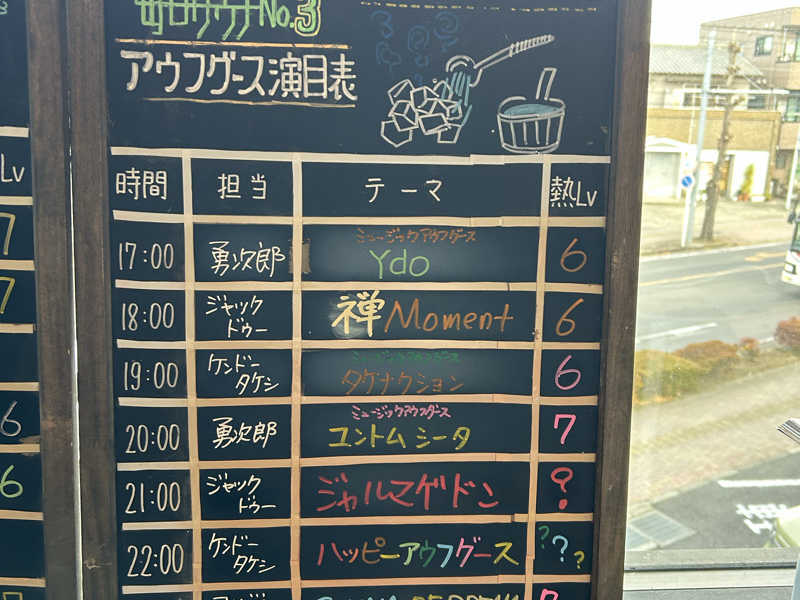 No.3
アウフグース演目表
時間 担当 テーマ 熱Lv
17:00 勇次郎 ミュージックアウフグース
Ydo 6
18:00 ジャック
ドゥー 禅Moment 6
19:00 ケンドー
タケシ ミュージックアウフグース
タケナクション 6
20:00 勇次郎 ミュージックアウフグース
ユントム シータ 7
21:00 ジャック
ドゥー ジャルマゲドン ?
22:00 ケンドー
タケシ ハッピーアウフグース ???
Lv
7
7
6
6